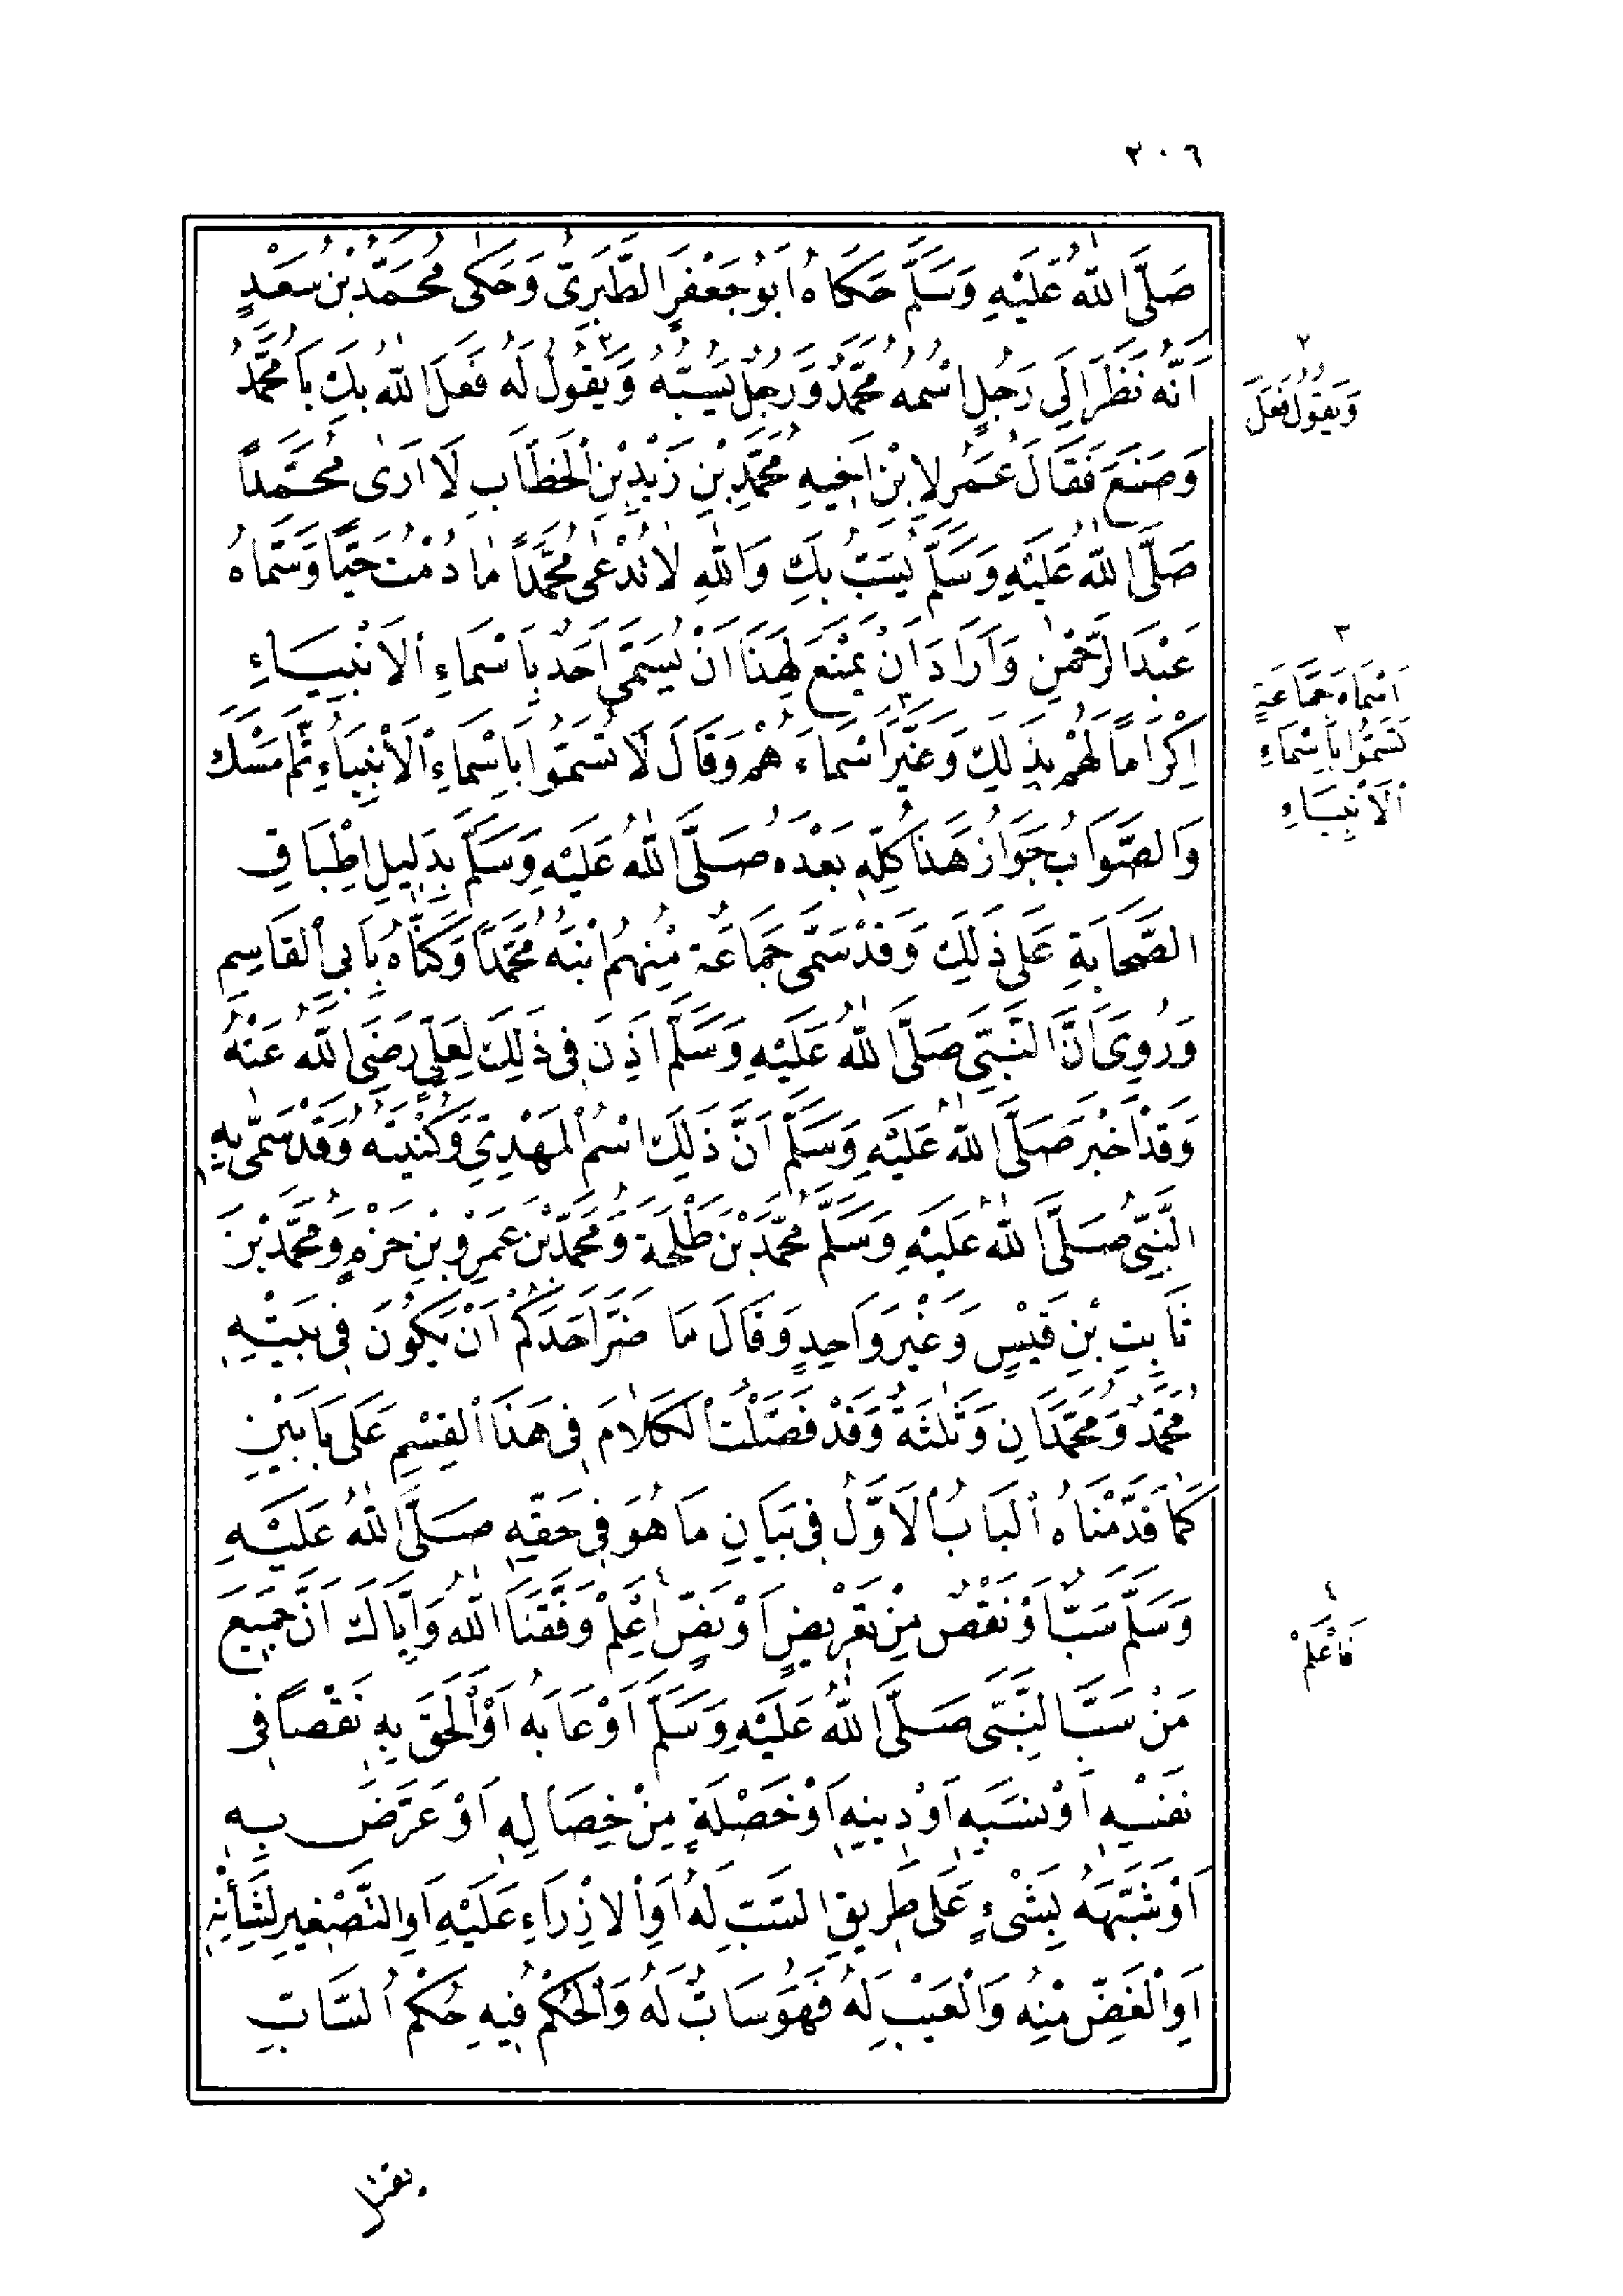 ٢٠٦
صَلَّى اللّٰهُ عَلَيْهِ وَسَلَّمَ حَكَاهُ اَبُو جَعْفَرٍ الطَّبَرِىُّ وَحَكٰى مُحَمَّدُ بْنُ سَعْدٍ
اَنَّهُ نَظَرَ اِلَى رَجُلٍ اسْمُهُ مُحَمَّدٌ وَرَجُلٌ يَسُبُّهُ وَيَقُولُ لَهُ فَعَلَ اللّٰهُ بِكَ يَا مُحَمَّدُ
وَصَنَعَ فَقَالَ عُمَرُ لِابْنِ اَخِيهِ مُحَمَّدِ بْنِ زَيْدِ بْنِ الْخَطَّابِ لَا اَرٰى مُحَمَّدًا
صَلَّى اللّٰهُ عَلَيْهِ وَسَلَّمَ يُسَبُّ بِكَ وَاللّٰهِ لَا تُدْعٰى مُحَمَّدًا مَا دُمْتُ حَيًّا وَسَمَّاهُ
عَبْدَ الرَّحْمٰنِ وَاَرَادَ اَنْ يَمْنَعَ لِهَذَا اَنْ يُسَمَّى اَحَدٌ بِاَسْمَاءِ الْاَنْبِيَاءِ
اِكْرَامًا لَهُمْ بِذَلِكَ وَغَيَّرَ اَسْمَاءَهُمْ وَقَالَ لَا تُسَمُّوا بِاَسْمَاءِ الْاَنْبِيَاءِ ثُمَّ اَمْسَكَ
وَالصَّوَابُ جَوَازُ هَذَا كُلِّهِ بَعْدَهُ صَلَّى اللّٰهُ عَلَيْهِ وَسَلَّمَ بِدَلِيلِ اِطْبَاقِ
الصَّحَابَةِ عَلَى ذَلِكَ وَقَدْ سَمَّى جَمَاعَةٌ مِنْهُمُ ابْنَهُ مُحَمَّدًا وَكَنَّاهُ بِاَبِى الْقَاسِمِ
وَرُوِىَ اَنَّ النَّبِىَّ صَلَّى اللّٰهُ عَلَيْهِ وَسَلَّمَ اَذِنَ فِى ذَلِكَ لِعَلِىٍّ رَضِىَ اللّٰهُ عَنْهُ
وَقَدْ اَخْبَرَ صَلَّى اللّٰهُ عَلَيْهِ وَسَلَّمَ اَنَّ ذَلِكَ اسْمُ الْمَهْدِىِّ وَكُنْيَتُهُ وَقَدْ سَمَّى بِهِ
النَّبِىُّ صَلَّى اللّٰهُ عَلَيْهِ وَسَلَّمَ مُحَمَّدَ بْنَ طَلْحَةَ وَمُحَمَّدَ بْنَ عَمْرِو بْنِ حَزْمٍ وَمُحَمَّدَ بْنَ
ثَابِتِ بْنِ قَيْسٍ وَغَيْرَ وَاحِدٍ وَقَالَ مَا ضَرَّ اَحَدَكُمْ اَنْ يَكُونَ فِى بَيْتِهِ
مُحَمَّدٌ وَمُحَمَّدَانِ وَثَلٰثَةٌ وَقَدْ فَصَّلْتُ الْكَلَامَ فِى هَذَا الْقِسْمِ عَلَى بَابَيْنِ
كَمَا قَدَّمْنَاهُ الْبَابُ الْاَوَّلُ فِى بَيَانِ مَا هُوَ فِى حَقِّهِ صَلَّى اللّٰهُ عَلَيْهِ
وَسَلَّمَ سَبٌّ اَوْ نَقْصٌ مِنْ تَعْرِيضٍ اَوْ نَصٍّ ٤ اِعْلَمْ وَفَّقَنَا اللّٰهُ وَاِيَّاكَ اَنَّ جَمِيعَ
مَنْ سَبَّ النَّبِىَّ صَلَّى اللّٰهُ عَلَيْهِ وَسَلَّمَ اَوْ عَابَهُ اَوْ اَلْحَقَ بِهِ نَقْصًا فِى
نَفْسِهِ اَوْ نَسَبِهِ اَوْ دِينِهِ اَوْ خَصْلَةٍ مِنْ خِصَالِهِ اَوْ عَرَّضَ بِهِ
اَوْ شَبَّهَهُ بِشَىْءٍ عَلَى طَرِيقِ السَّبِّ لَهُ اَوِ الْاِزْرَاءِ عَلَيْهِ اَوِ التَّصْغِيرِ لِشَأْنِهِ
اَوِ الْغَضِّ مِنْهُ وَالْعَيْبِ لَهُ فَهُوَ سَابٌّ لَهُ وَالْحُكْمُ فِيهِ حُكْمُ السَّابِّ
٢
وَيَقُولُ فَعَلَ
٣
اَسْمَاءَ جَمَاعَةٍ
تَسَمَّوْا بِاَسْمَاءِ
الْاَنْبِيَاءِ
٤
فَاعْلَمْ
يقتل